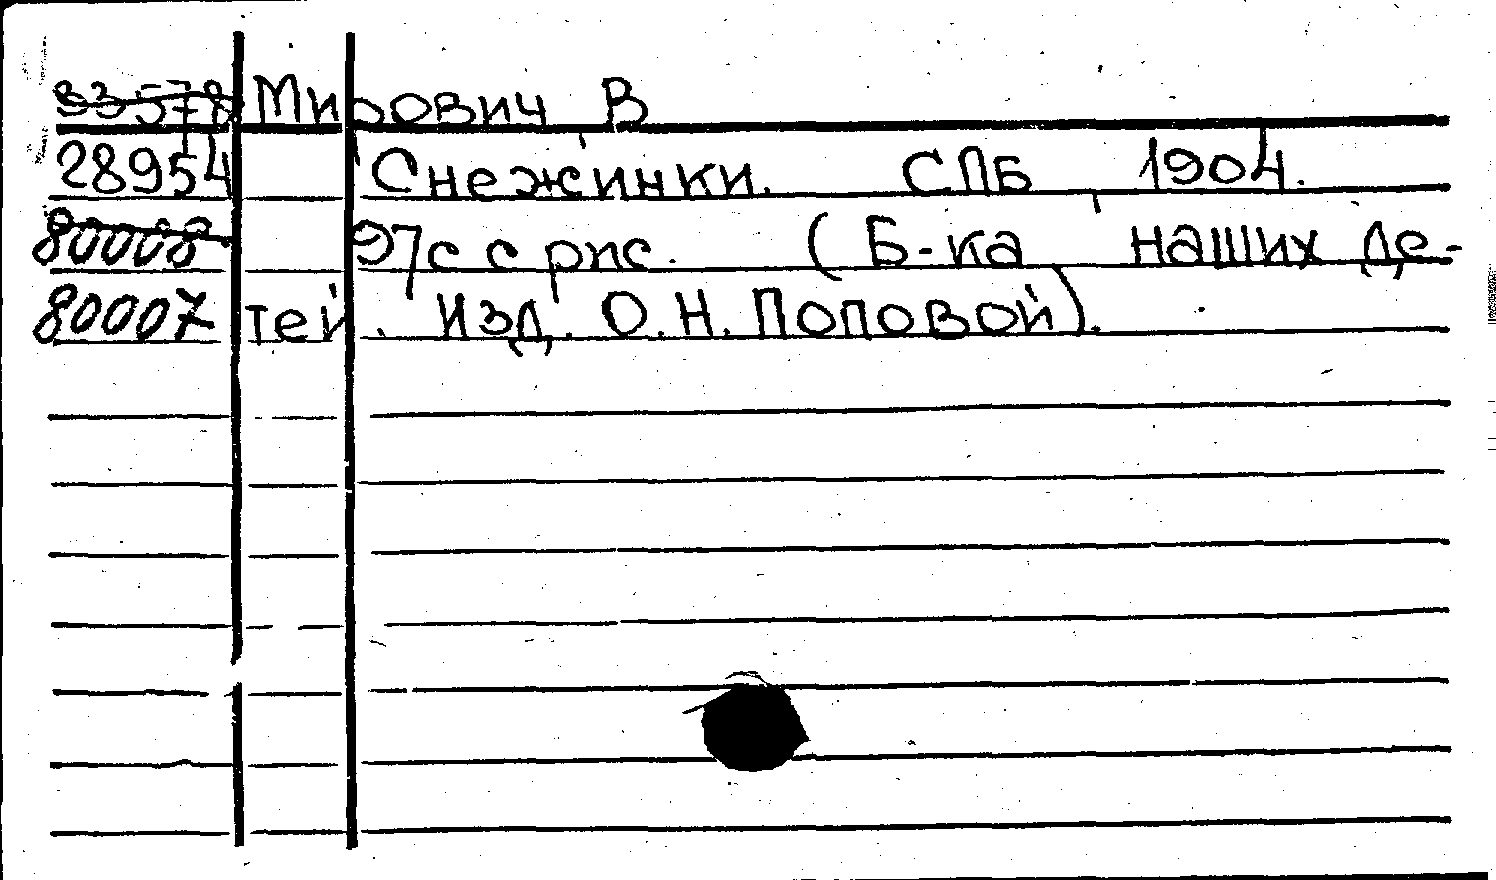 33578 Мирович В
28954 Снежинки. СПБ 1904.
80008 97с с рис. (Б-ка наших де-
80007 тей. Изд. О.Н.Поповой).